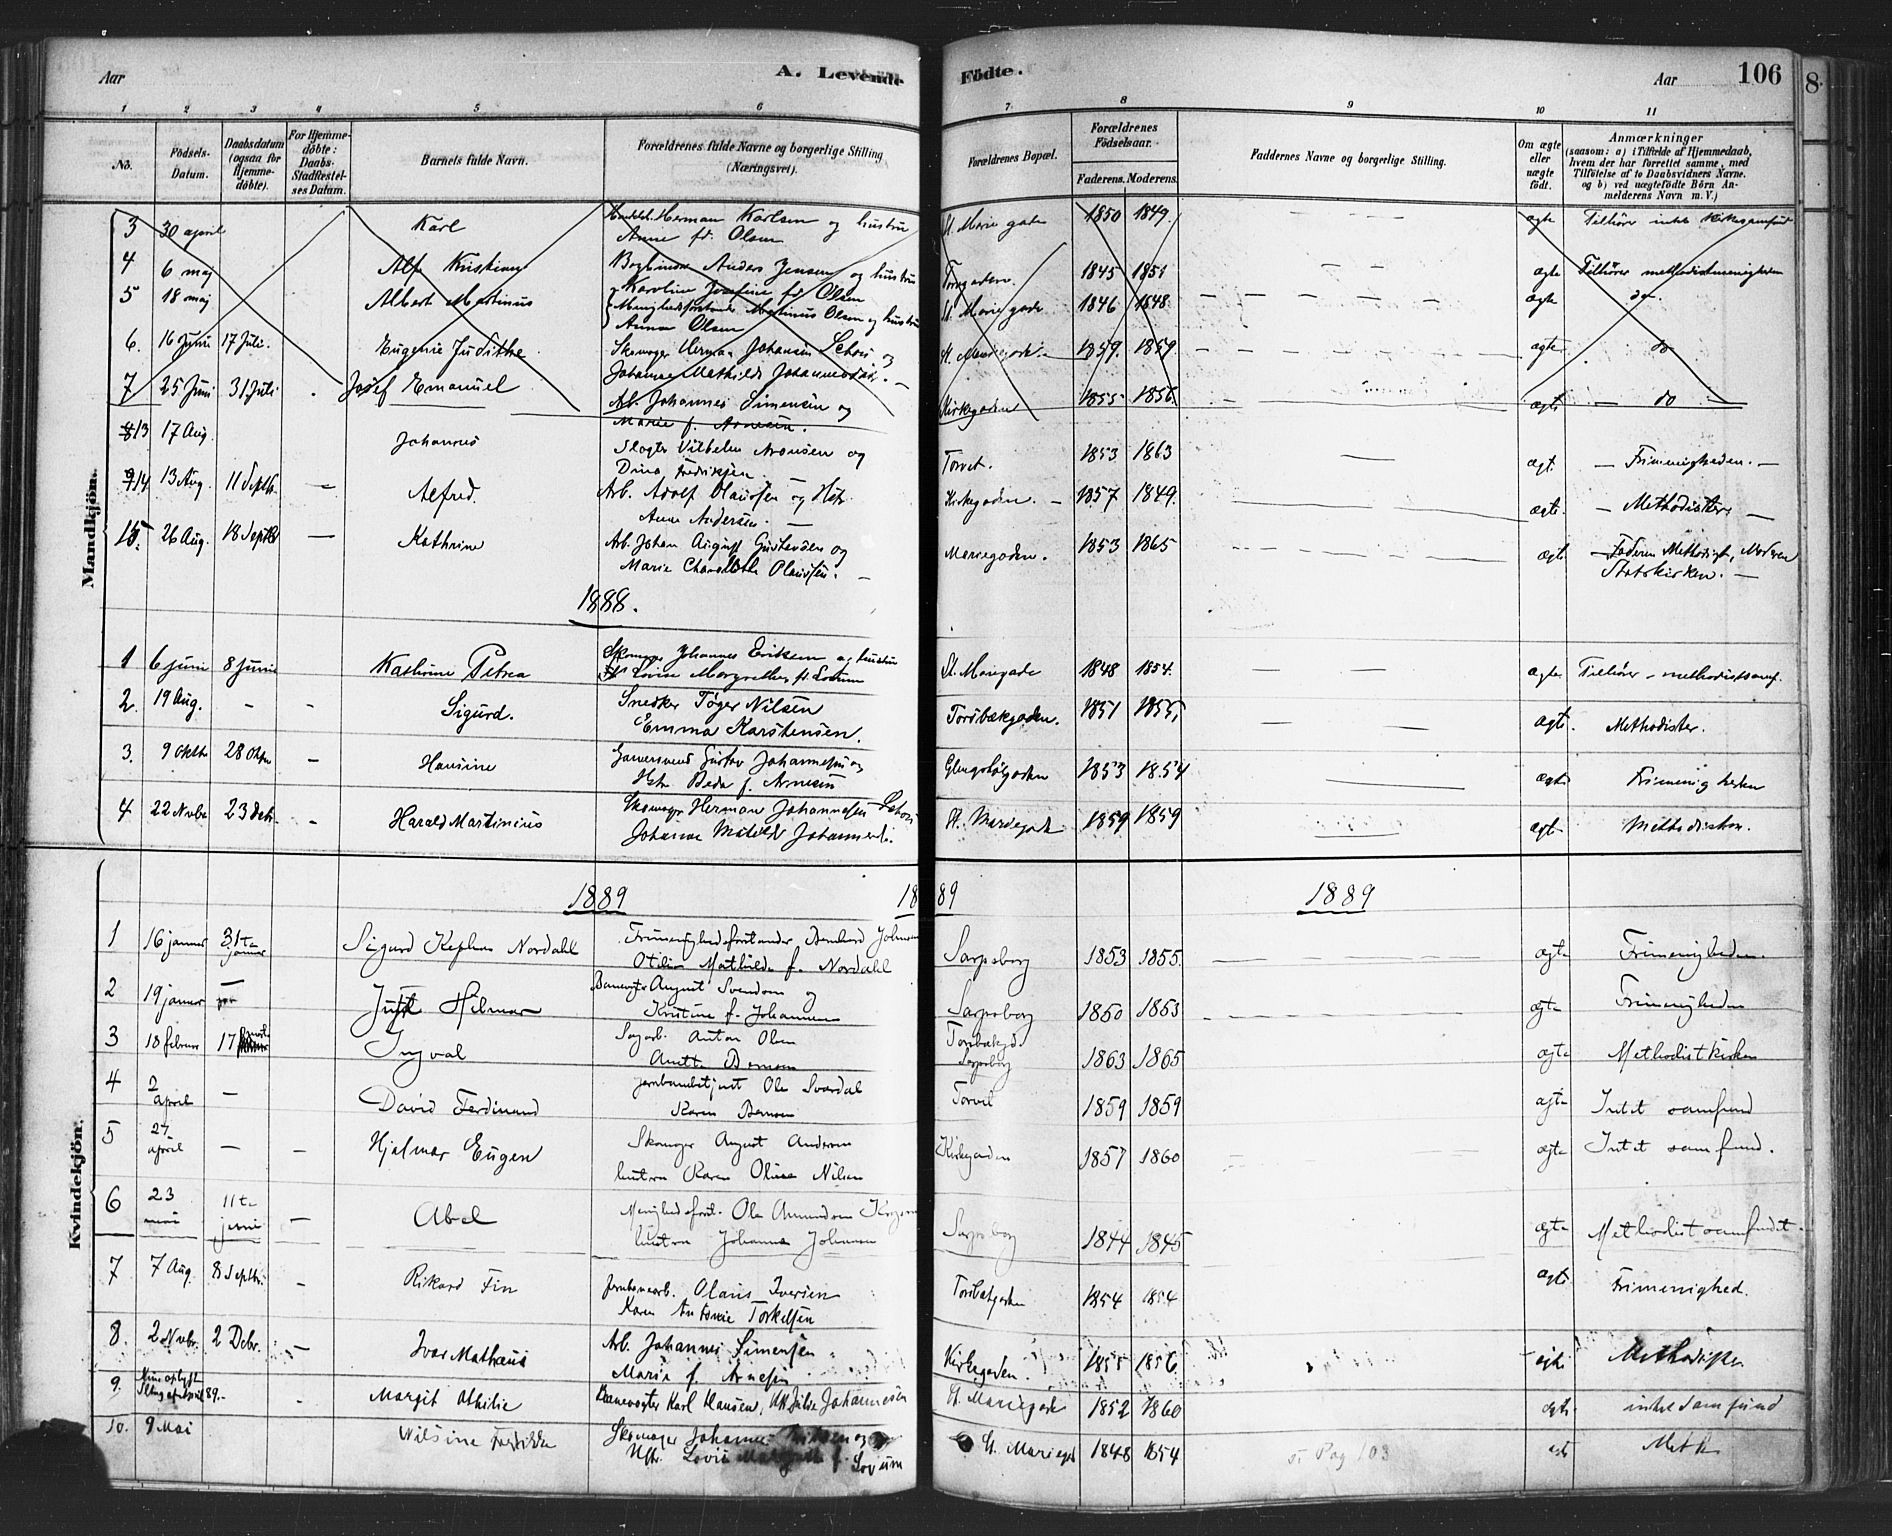 Aar A. Levende Fødte. Aar 106 8
1 2 3 4 5 6 7 8 9 10 11
No. Fødsels-Datum. Daabsdatum (ogsaa for Hjemmedöbte). For Hjemmedöbte: Daabs-Stadfæstelses Datum. Barnets fulde Navn. Forældrenes fulde Navne og borgerlige Stilling (Næringsvei). Forældrenes Bopæl. Forældrenes Födselsaar. Faderens. Moderens. Faddernes Navne og borgerlige Stilling. Om ægte eller uægte födt. Anmærkninger (saasom: a) i Tilfælde af Hjemmedaab, hvem der har forrettet samme, med Tilföielse af to Daabsvidners Navne. og b) ved uægtefödte Börn Anmelderens Navn m. V.)
Mandkjön.
3 30 april Karl Herman Karlsen og hustru
Anne fd. Olsen St. Marie gade 1850 1849 ægte Tilhører intet Kirkesamfund
4 6 maj Alf Kristian Anders Jensen og hustru
Karoline Josefine fd. Olsen Torvgaden 1845 1851 ægte Tilhører methodistmenigheden
5 18 maj Albert Martinus Menighedsforstander Martinus Olsen og hustru
Anna Olsen St. Marie gade 1846 1848 ægte do
6. 16 Juni 17 Juli. Eugenie Judithe Skomager Herman Johansen Schou og
Johanne Mathilde Johannesdatter. St. Mariegade 1859 1859 ægte do
7 25 Juni 31 Juli Josef Emanuel Arb. Johannes Simensen og
Marie f. Arnesen. Kirkegaden 1855 1856 ægte do
13 17 Aug. Johannes Slagter Vilhelm Aronsen og
Dina Fredriksen Torvet. 1853 1863 ægt. Frimenigheden.
14 13 Aug. 11 Septbr. Alfred. Arb. Adolf Olaussen og Hstr.
Anne Andersen. Kirkegaden. 1857 1849 ægte. Methodister
15 26 Aug. 18 Septbr Kathrine Arb. Johan August Gustavsen og
Marie Charlotte Olaussen. Mariegaden. 1853 1865 ægt Faderen Methodist, Moderen
Statskirken.
1888.
1 6 juni 8 juni Kathrine Petrea Skomager Johannes Eriksen og hustru
Lovise Margrethe fd. Lorum St. Mariegade 1848 1854. ægte Tilhører methodistsamf.
2. 19 Aug. Sigurd. Snedker Tøger Nilsen
Emma Karstensen. Torsbækgaden. 1851 1855 ægt. Methodister.
3. 9 Oktbr 28 Oktbr Hansine Garversvend Gustav Johannesen og
Hstr. Beda f. Arnesen Glengshølgaden 1853 1854 ægte Frimenigheden
4 22 Novbr 23 Debr. Harald Martinius Skomager Herman Johannesen Schou
Johanne Matilde Johannesd. St. Mariegade 1859 1859 ægt. Methodister.
Kvindekjön.
1889 1889 1889
1 16 januar 31te januar Sigurd Kephas Nordahl Frimenighedsforstander Bernhard Johnsen
Otilie Mathilde f. Nordahl Sarpsborg 1853 1855. ægte Frimenigheden.
2 19 januar Just Hilmar Banevogter August Svendsen og
Kristine f. Johannesen Sarpsborg 1860 1863 ægte Frimenigheden
3 18 februar 17 Ingval Sagarb. Anton Olsen
Anette Bernsen Torsbækgd. Sarpsborg 1863 1865 ægte Methodistkirken
4 2 april David Ferdinand Jernbanebetjent Ole Svardal
Karen Bernsen Torvet 1859 1859 ægte Intet samfund
5 27 april Hjalmar Eugen Skomager August Andersen
hustru Karen Oline Nilsen Kirkegaden 1857 1860 ægte Intet samfund.
6 23 mai 11te juni Abel Menighedsforst. Ole Amundsen
hustru Johanne Johansen Sarpsborg 1844 1845 ægte Methodistsamfundet
7 7 Aug. 8 Septbr. Rikard Fin Jernbanearb. Olaus Iversen
Karen Antonie Torkelsen Torsbækgaden 1854 1854 ægte Frimenighed.
8. 2 Nvbr. 2 Debr. Ivar Mathæus Arb. Johannes Simensen
Marie f. Arnesen Kirkegaden. 1855 1856 ægte Methodister
9. Slutn. af April 89. Margit Othilie Banevogter Karl Hansen, Hst. Julie Johannesen St. Mariegade 1852 1860 ægte intet Samfund
10. 9 Mai Nilsine Fredrikke Skomager Johannes Eriksen og
Hstr. Lovise Margrethe f. Lorum St. Mariegd 1848 1854 s. Pag 103 ægte Meth